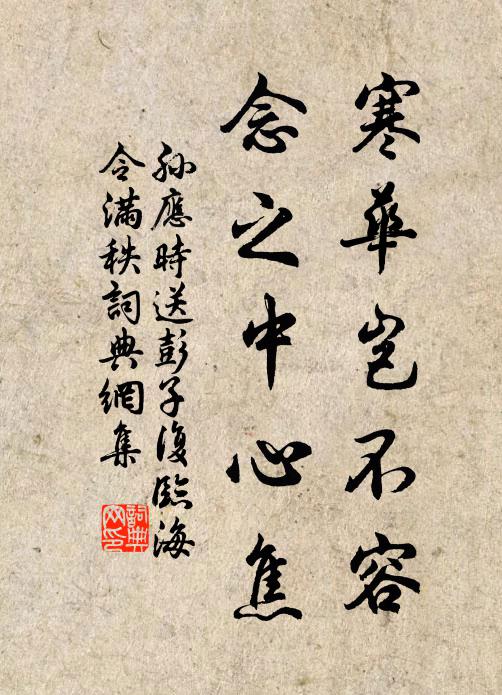 寒華豈不容
念之中心焦
孫應時送彭子復臨海
令滿秩詞典網集
詞典網印